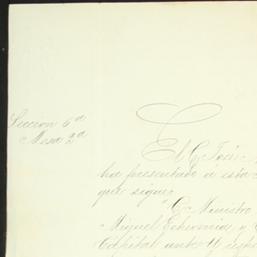 Seccion 6ª
Mesa 2ª
El C. Joié
ha presentado á esta
que sigue:
"C. Ministro
Miguel Echeverria, y
Capital, ante V. respe